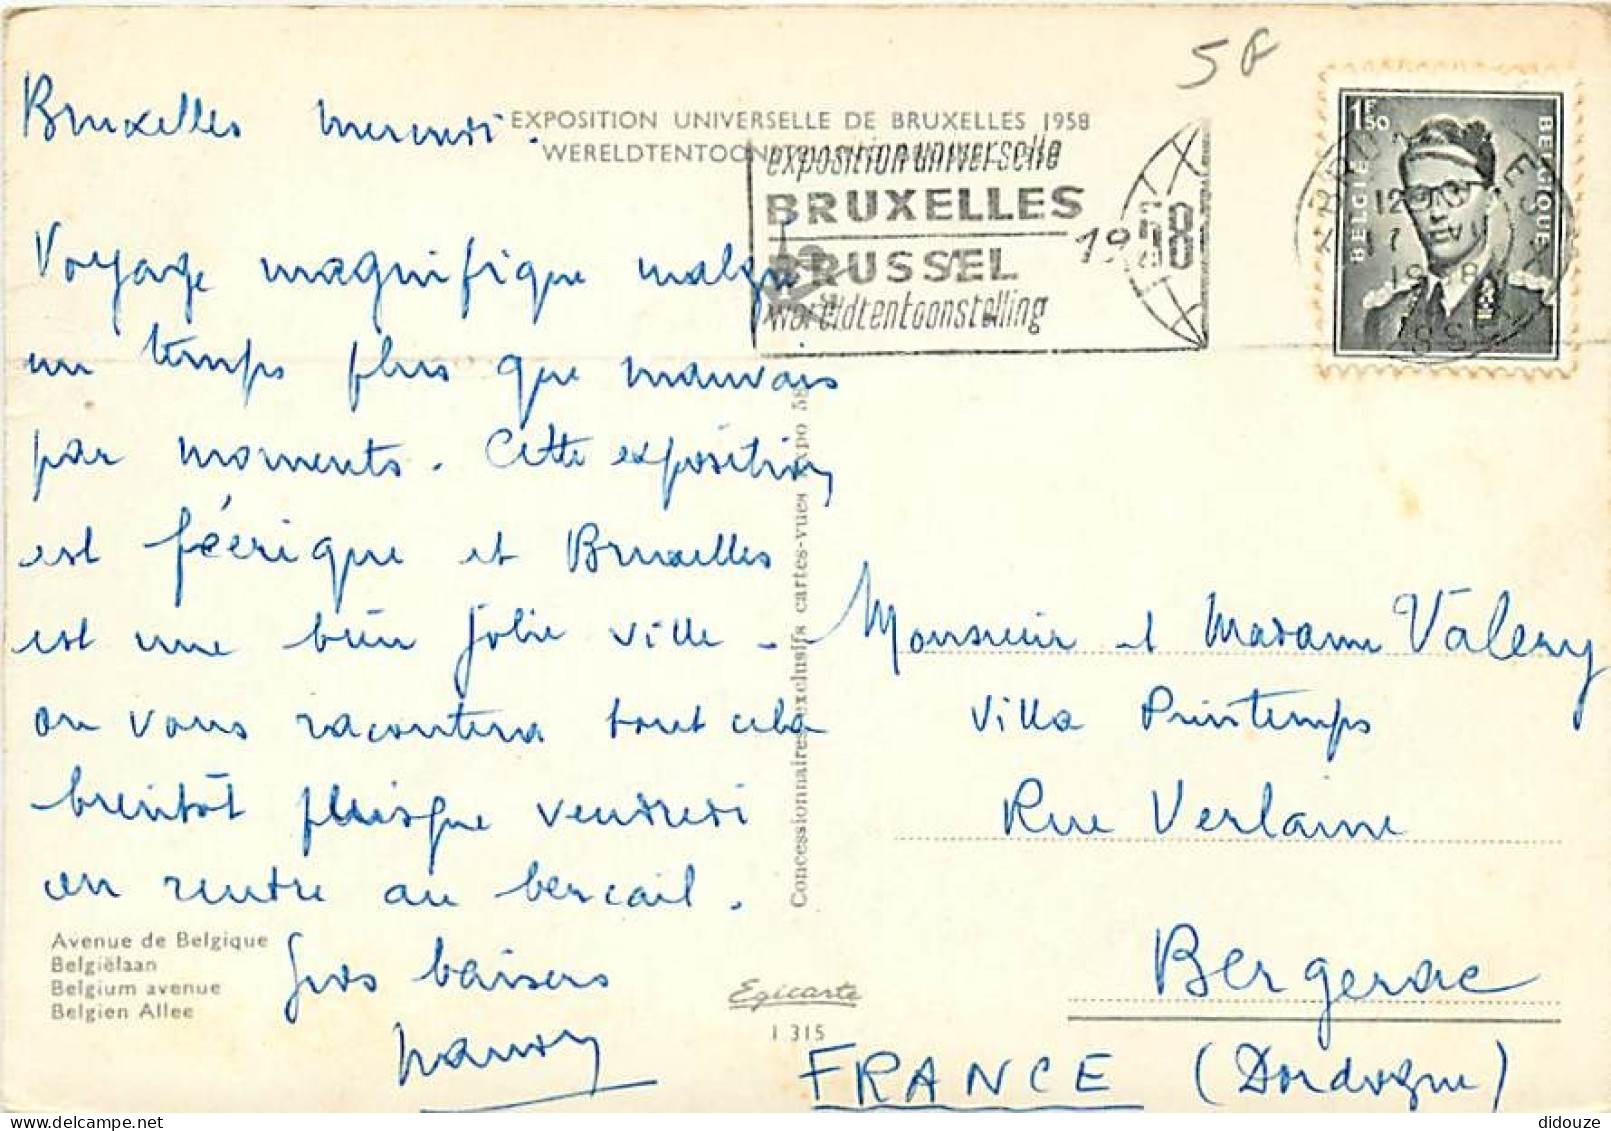 5F
Bruxelles mercredi.
EXPOSITION UNIVERSELLE DE BRUXELLES 1958
exposition universelle
BRUXELLES
BRUSSEL
wereldtentoonstelling
1958
1F50
BELGIE
BELGIQUE
Voyage magnifique malgré
un temps plus que mauvais
par moments. Cette exposition
est féérique et Bruxelles
est une bien jolie ville -
on vous racontera tout cela
bientôt puisque vendredi
on rentre au bercail.
Gros baisers
Avenue de Belgique
Belgiëlaan
Belgium avenue
Belgien Allee
Concessionnaires exclusifs cartes-vues Expo 58
Egicarte
1 315
Monsieur et Madame Valery
Villa Printemps
Rue Verlaine
Bergerac
FRANCE (Dordogne)
delcampe.net
didouze